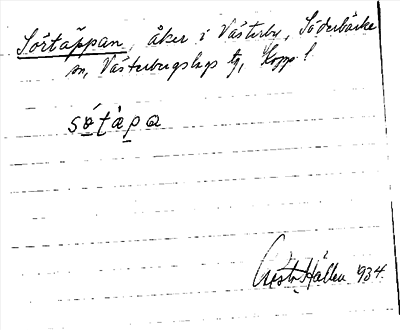 Sörtäppan, åker i Västerby, Söderbärke
sn, Västerbergslags tg, Kopp. l.
Gösta Hallén 934